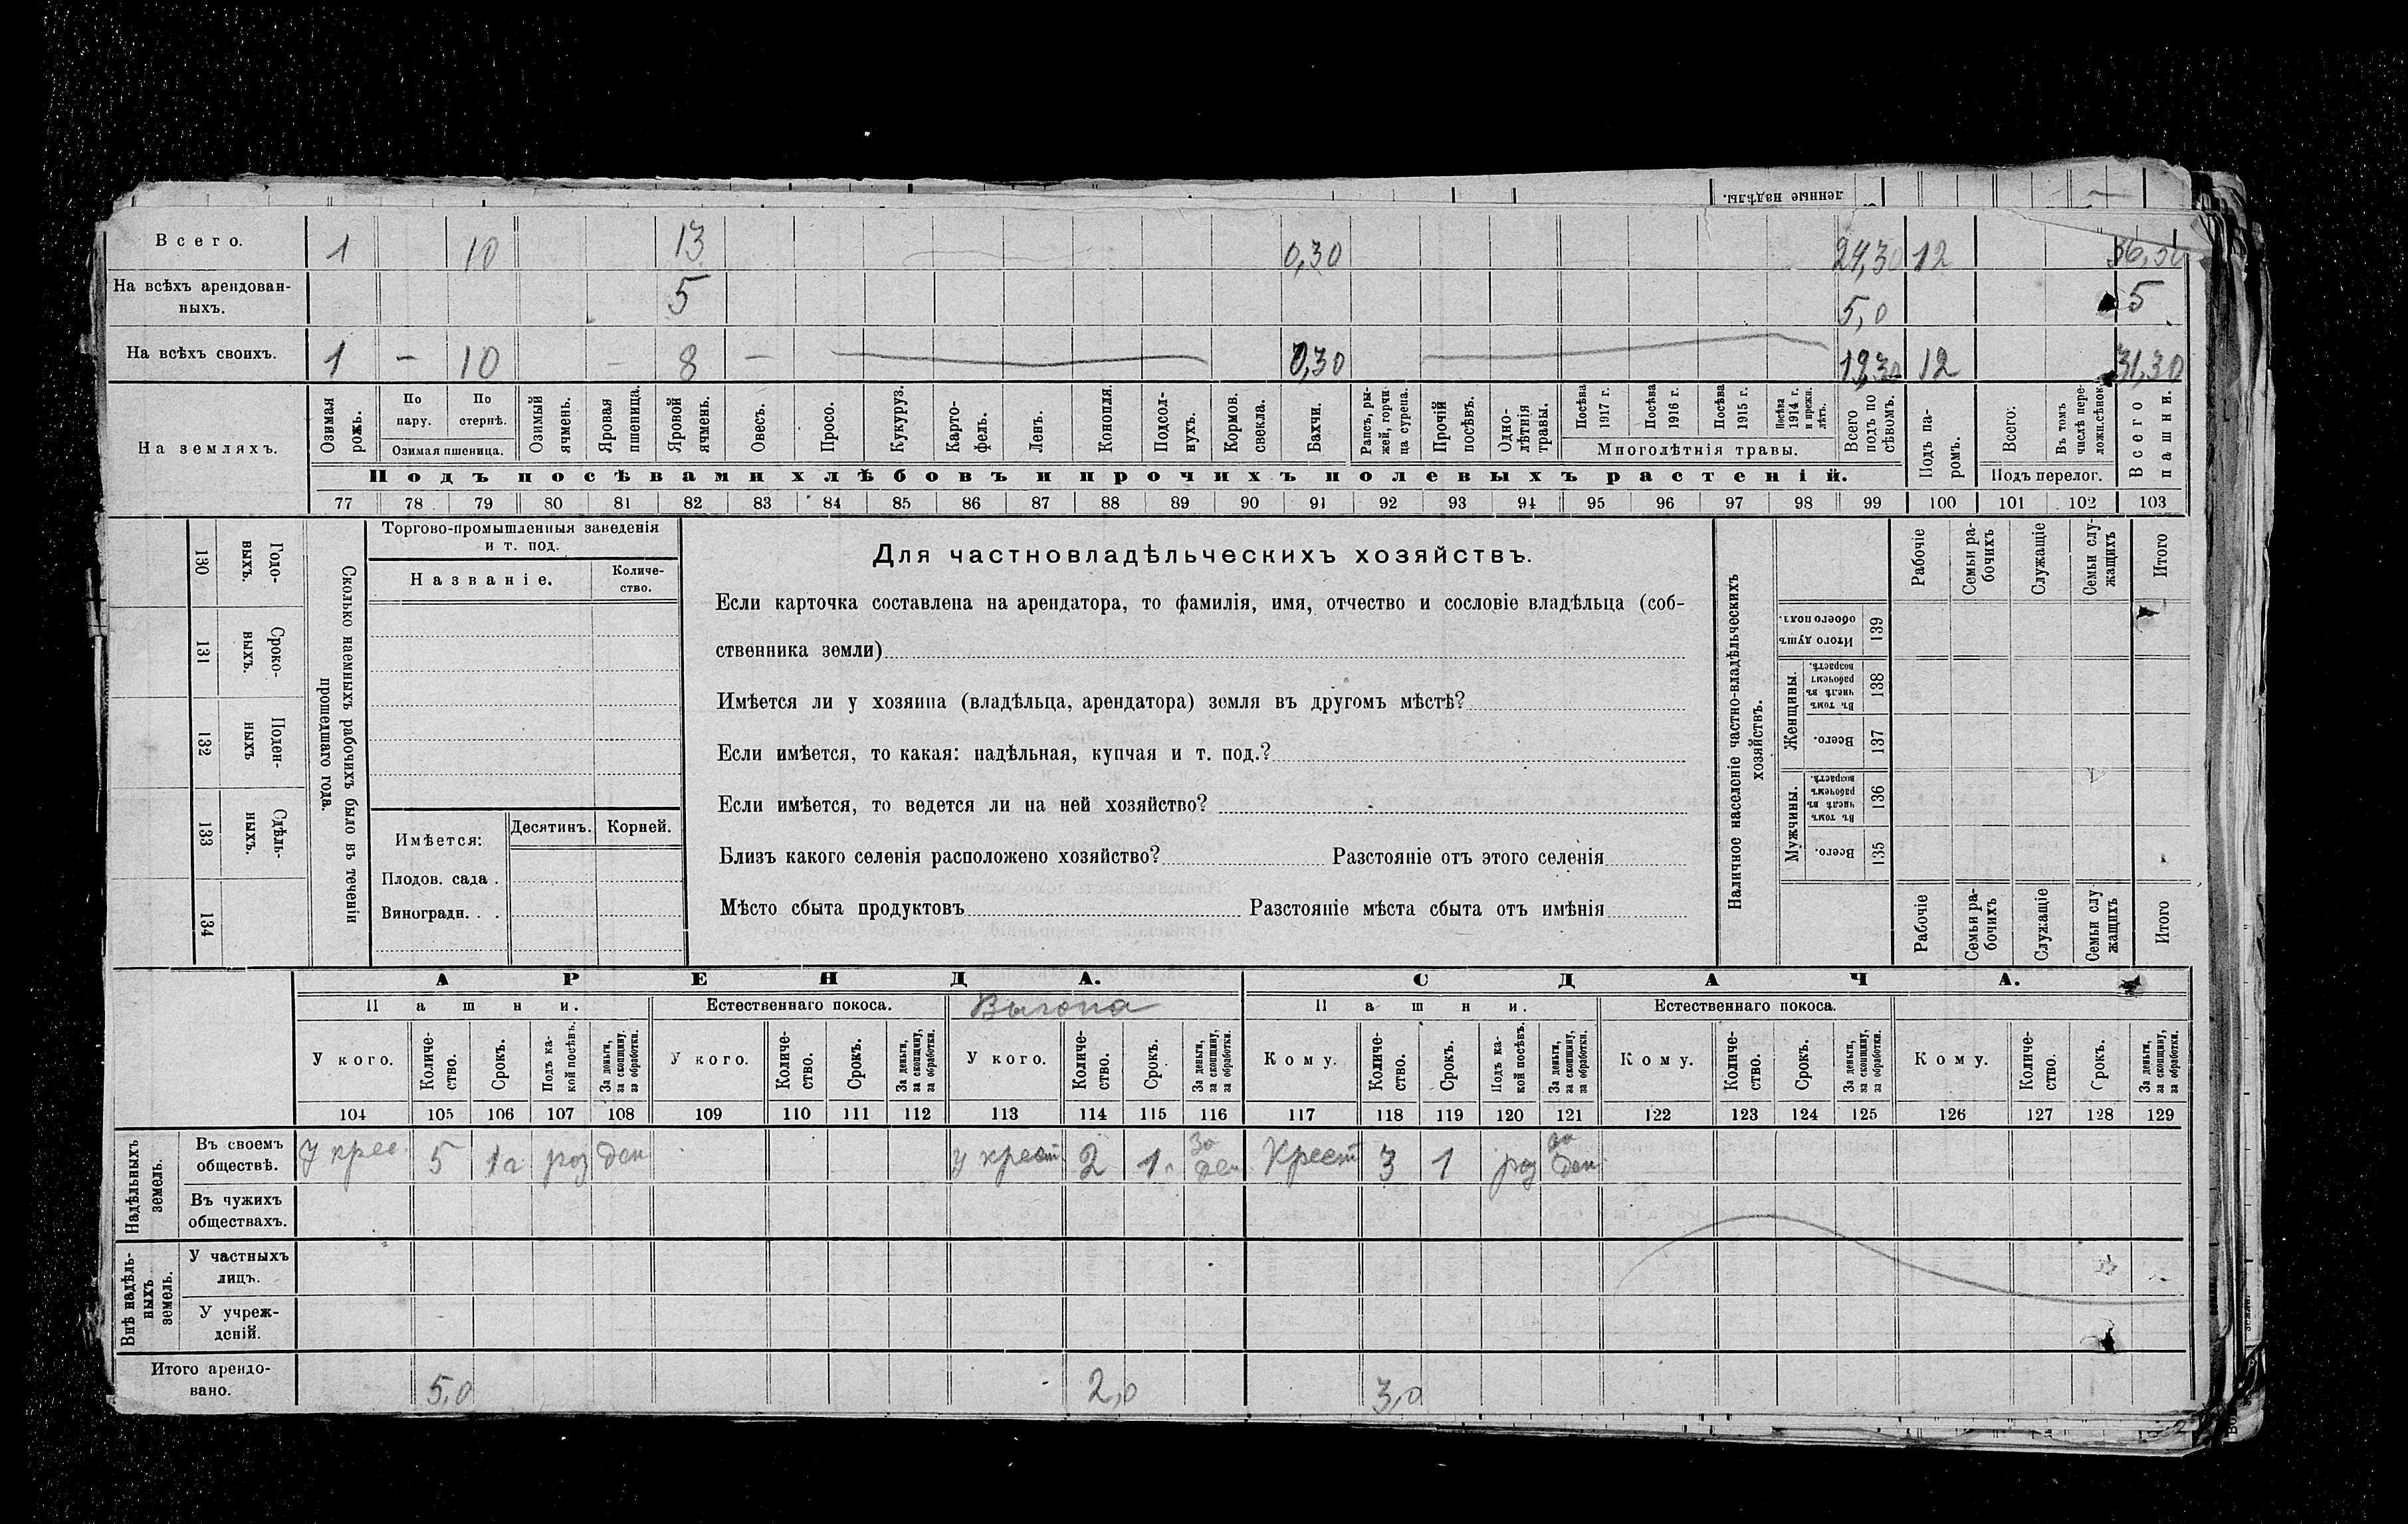 В с е г о. 1 10 13 0,30 24,30 12 36,30
На всѣхъ арендован-
ныхъ. 5 5,0 5
На всѣхъ своихъ. 1 — 10 — 8 — 0,30 19,30 12 31,30
На земляхъ.
Озимая рожь.
По пару.
По стернѣ.
Озимая пшеница.
Озимый ячмень.
Яровая пшеница.
Яровой ячмень.
Овесъ.
Просо.
Кукуруз.
Карто-
фель.
Ленъ.
Конопля.
Подсол-
нухъ.
Кормов. свекла.
Бахчи.
Рапсъ, ры-
жей, горчи
ца сурепа.
Прочій посѣвъ.
Одно-
лѣтнія
травы.
Посѣва 1917 г.
Посѣва 1916 г.
Посѣва 1915 г.
Посѣва 1914 г. и прежн. лѣтъ.
Многолѣтнія травы.
Всего подъ по сѣвомъ.
Подъ па-
ромъ.
Всего:
Въ томъ числѣ пере-
ложн.сѣнок.
Подъ перелог.
Всего пашни.
Подъ посѣвами хлѣбовъ и прочихъ полевыхъ растеній.
77 78 79 80 81 82 83 84 85 86 87 88 89 90 91 92 93 94 95 96 97 98 99 100 101 102 103
Сколько наемныхъ рабочихъ было въ теченіи
прошедшаго года.
Годо-
выхъ.
130
Сроко-
выхъ.
131
Поден-
ныхъ
132
Сдѣль-
ныхъ.
133
134
Торгово-промышленныя заведенія
и т. под.
Названіе.
Количе-
ство.
Имѣется:
Десятинъ.
Корней.
Плодов. сада .
Виноградн. . .
Для частновладѣльческихъ хозяйствъ.
Если карточка составлена на арендатора, то фамилія, имя, отчество и сословіе владѣльца (соб-
ственника земли)
Имѣется ли у хозяина (владѣльца, арендатора) земля въ другомъ мѣстѣ?
Если имѣется, то какая: надѣльная, купчая и т. под.?
Если имѣется, то ведется ли на ней хозяйство?
Близъ какого селенія расположено хозяйство? Разстояніе отъ этого селенія
Мѣсто сбыта продуктовъ Разстояніе мѣста сбыта отъ имѣнія
Наличное населеніе частно-владѣльческихъ
хозяйствъ.
Рабочіе
Семьи ра-
бочихъ
Служащіе
Семьи слу
жащихъ
Итого
Итого душъ обоего пола.
139
Женщины.
Въ томъ числѣ въ рабочемъ возрастѣ.
138
Всего.
137
Мужчины.
Въ томъ числѣ въ рабочемъ возрастѣ.
136
Всего.
135
Рабочіе
Семьи ра-
бочихъ
Служащіе
Семьи слу
жащихъ
Итого
АРЕНДА. СДАЧА.
Пашни. Естественнаго покоса. Выгона Пашни. Естественнаго покоса.
У кого. Количе-
ство. Срокъ. Подъ ка-
кой посѣвъ. За деньги, за скопщину, за обработки.
У кого. Количе-
ство. Срокъ. За деньги, за скопщину, за обработки.
У кого. Количе-
ство. Срокъ. За деньги, за скопщину, за обработки.
Кому. Количе-
ство. Срокъ. Подъ ка-
кой посѣвъ. За деньги, за скопщину, за обработки.
Кому. Количе-
ство. Срокъ. За деньги, за скопщину, за обработки.
Кому. Количе-
ство. Срокъ. За деньги, за скопщину, за обработки.
104 105 106 107 108 109 110 111 112 113 114 115 116 117 118 119 120 121 122 123 124 125 126 127 128 129
Надѣльныхъ
земель.
Въ своемъ
обществѣ. У крес. 5 1 г роз ден у крест. 2 1 г за ден. Крест 3 1 роз за ден.
Въ чужихъ
обществахъ.
Внѣ надѣль-
ныхъ
земель.
У частныхъ
лицъ.
У учреж-
деній.
Итого арендо-
вано. 5,0 2,0 3,0
ленные надѣлы.